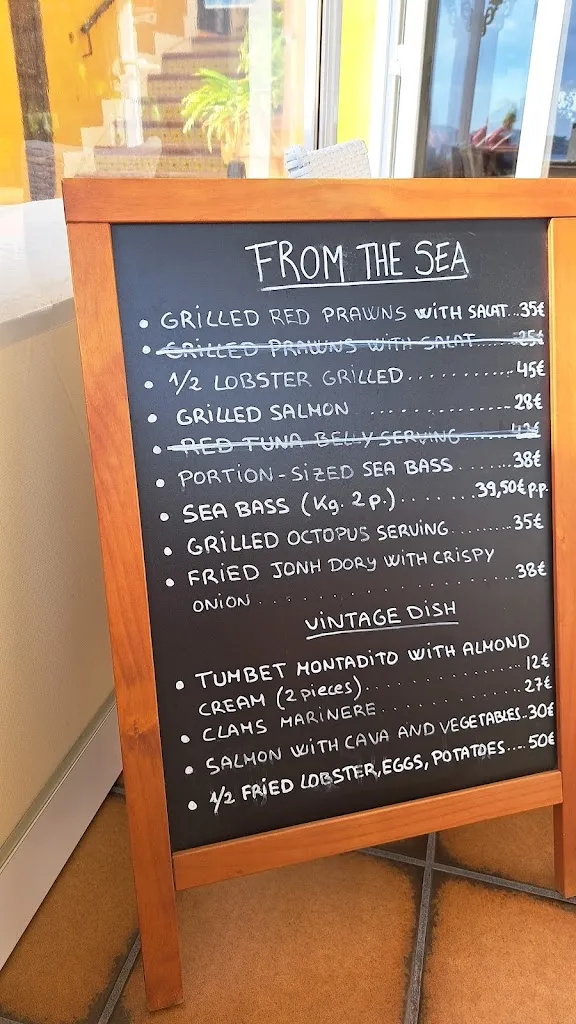 FROM THE SEA
• GRILLED RED PRAWNS WITH SALAT...35€
• GRILLED PRAWNS WITH SALAT.....25€
• 1/2 LOBSTER GRILLED...........45€
• GRILLED SALMON ..............28€
• RED TUNA BELLY SERVING.......42€
• PORTION-SIZED SEA BASS ......38€
• SEA BASS (Kg. 2p.).......39,50€ p.p.
• GRILLED OCTOPUS SERVING.........35€
• FRIED JONH DORY WITH CRISPY
ONION .................38€
VINTAGE DISH
• TUMBET MONTADITO WITH ALMOND
CREAM (2 pieces)...............12€
• CLAMS MARINERE...............27€
• SALMON WITH CAVA AND VEGETABLES..30€
• 1/2 FRIED LOBSTER, EGGS, POTATOES....50€